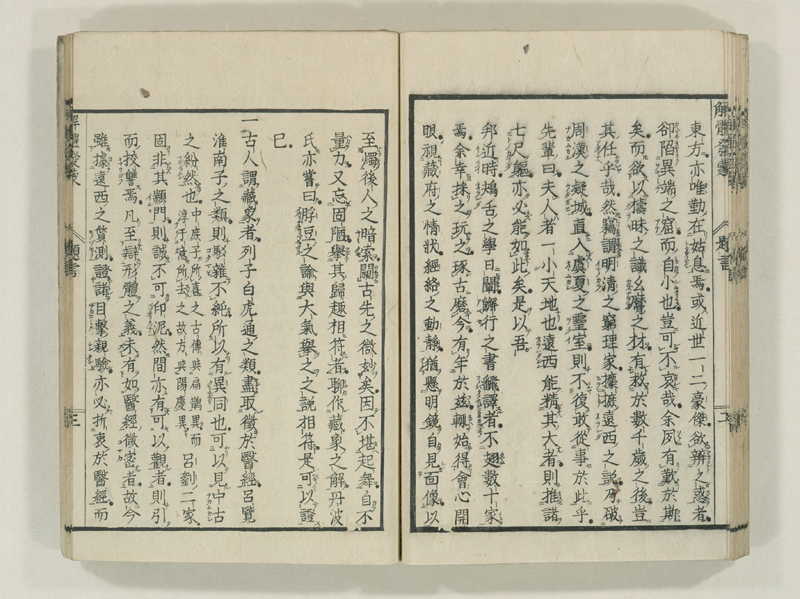 東方亦唯勤在姑息焉或近世一二豪傑欲辨之惑者
卻陷異端之窟而自小也豈可不哀哉余夙有歎於斯
矣而欲以擣昧之識幺麼之材有救於數千歲之後豈
其任乎哉然竊謂明清之窮理家摭摭遠西之說乃破
周漢之疑城直入虞夏之靈室則不復敢從事於此乎
先輩曰夫人者一小天地也遠西能精其大者則推諸
七尺軀亦必能如此矣是以吾
邦近時鴃舌之學日闢解行之書飜譯者不翅數十家
焉余幸採之玩之琢古磨今有年於玆轉始得會心開
眼視藏府之情狀經絡之動靜猶懸明鏡自見面像以
至燭後人之暗索闢古先之微玅矣因不堪起舞自不
量力又忘固陋擧其歸趣相符者聊作藏象之解丹波
氏亦嘗曰䏶豆之諭與大氣擧之之説相符是可以證
已
一古人謂藏象者列子白虎通之類盡取徵於醫經呂覽
淮南子之類則駁雜不純所以有異同也可以見中古
之紛然也中庶子所喜之古傳與扁鵲異而呂劉二家
淳于意所去之故方與陽慶異
固非其顓門則誠不可印泥然間亦有可以觀者則引
而挍讐焉凡至辯形體之義未有如醫經微密者故今
雖據遠西之質測證諸目擊親驗亦必折衷於醫經而
題言
三